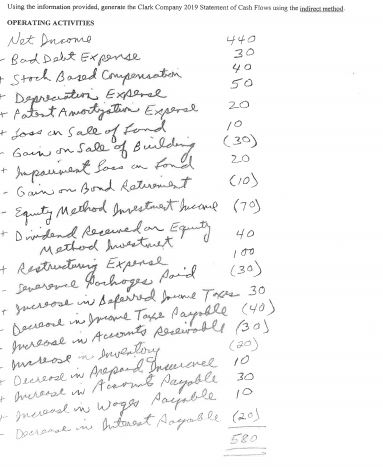 Using the information provided, generate the Clark Company 2019 Statement of Cash Flows using the indirect method.
OPERATING ACTIVITIES
Net Income 440
- Bad Debt Expense 30
+ Stock Based Compensation 40
+ Depreciation Expense 50
+ Patent Amortization Expense 20
+ Loss on Sale of Land 10
- Gain on Sale of Building (30)
+ Impairment Loss on Land 20
- Gain on Bond Retirement (10)
- Equity Method Investment Income (70)
+ Dividend Received on Equity
Method Investment 40
+ Restructuring Expense 100
- Severence Packages Paid (30)
+ Increase in Deferred Income Taxes 30
- Decrease in Income Taxe Payable (40)
- Increase in Accounts Receivable (30)
- Increase in Inventory (20)
+ Decrease in Prepaid Insurance 10
+ Increase in Accounts Payable 30
+ Increase in Wages Payable 10
- Decrease in Interest Payable (20)
580